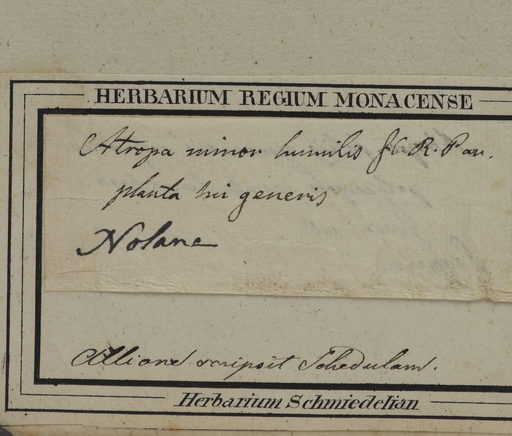 HERBARIUM REGIUM MONACENSE
Atropa minor humilis H. R. Par.
planta sui generis
Nolana
Allione scripsit Schedulam.
Herbarium Schmiedelian